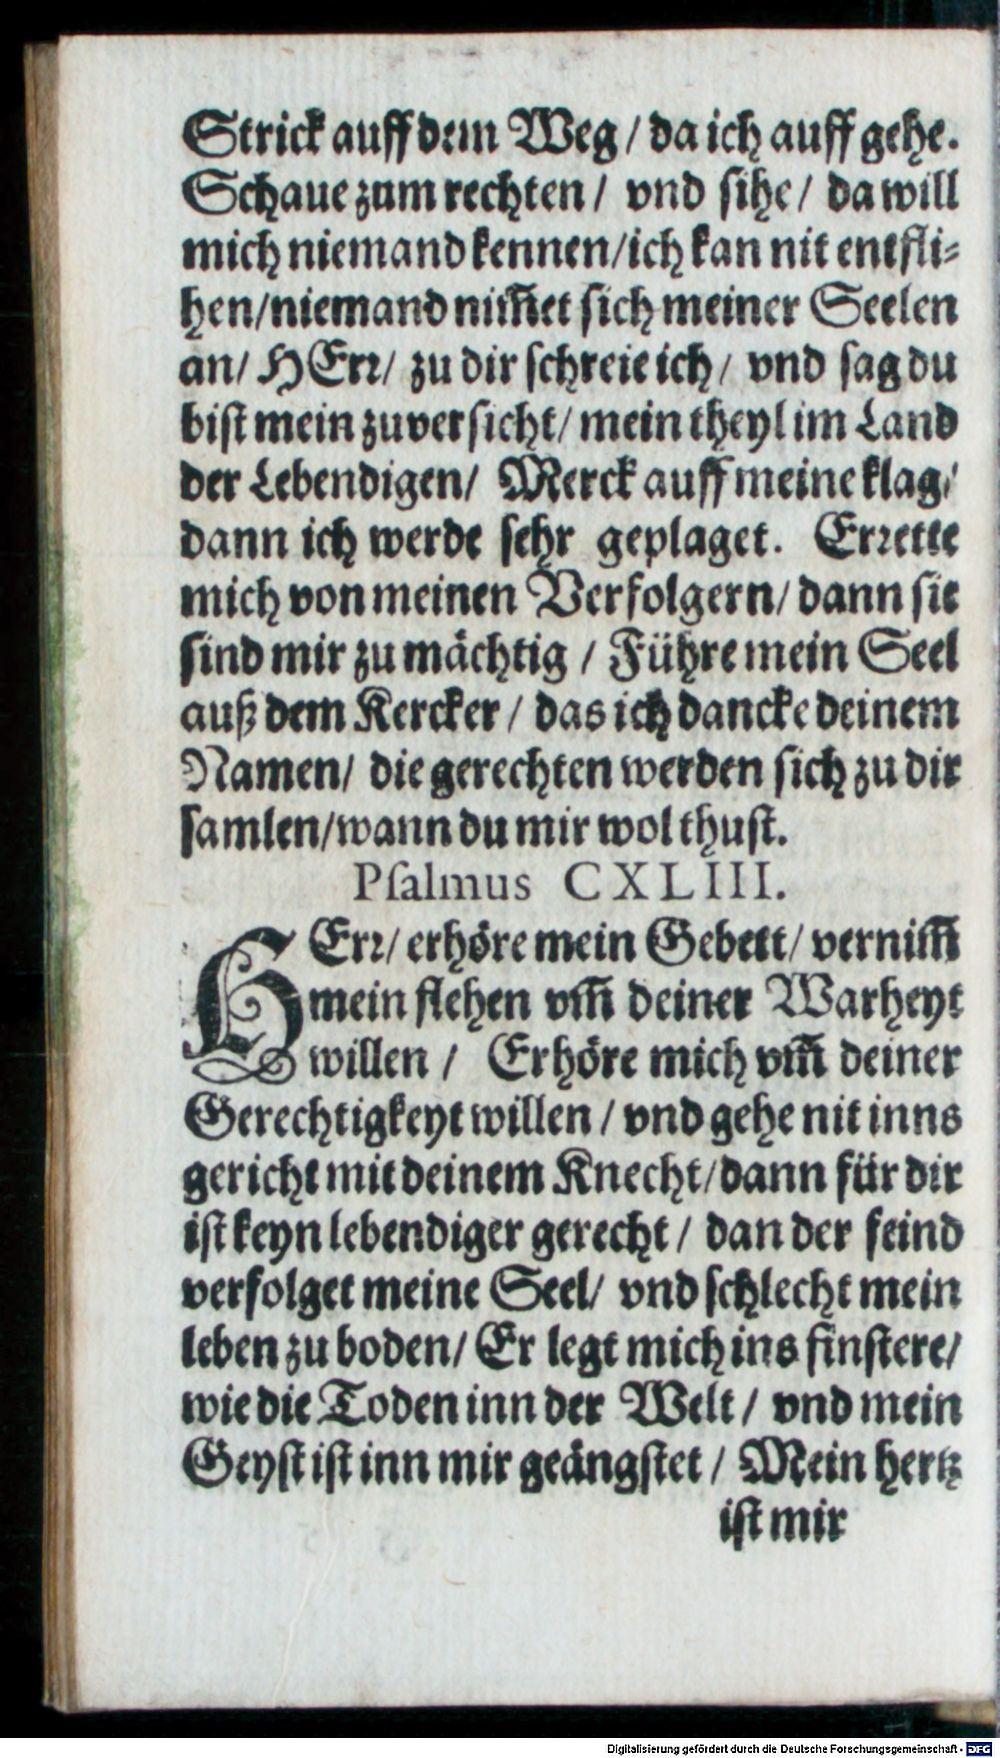 Strick auff dem Weg / da ich auff gehe.
Schaue zum rechten / vnd sihe / da will
mich niemand kennen/ich kan nit entfli-
hen/niemand nim̃et sich meiner Seelen
an/ HErr/ zu dir schreie ich / vnd sag du
bist mein zuversicht/ mein theyl im Land
der Lebendigen/ Merck auff meine klag/
dann ich werde sehr geplaget. Errette
mich von meinen Verfolgern/ dann sie
sind mir zu mächtig / Führe mein Seel
auß dem Kercker / das ich dancke deinem
Namen/ die gerechten werden sich zu dir
samlen/wann du mir wol thust.
Psalmus CXLIII.
HErr/ erhöre mein Gebett/ vernim̃
mein flehen vm̃ deiner Warheyt
willen / Erhöre mich vm̃ deiner
Gerechtigkeyt willen / vnd gehe nit inns
gericht mit deinem Knecht/dann für dir
ist keyn lebendiger gerecht / dan der feind
verfolget meine Seel/ vnd schlecht mein
leben zu boden/ Er legt mich ins finstere/
wie die Toden inn der Welt / vnd mein
Geyst ist inn mir geängstet / Mein hertz
ist mir
Digitalisierung gefördert durch die Deutsche Forschungsgemeinschaft - DFG